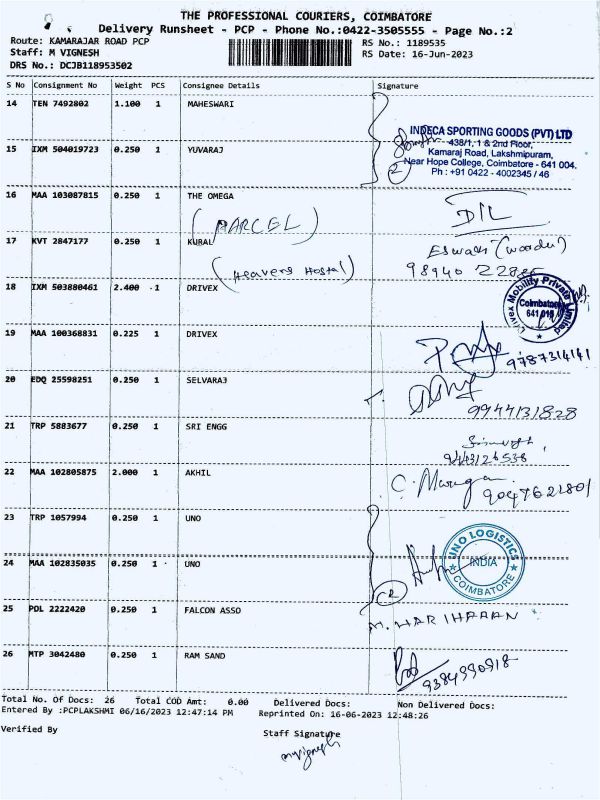 THE PROFESSIONAL COURIERS, COIMBATORE
Delivery Runsheet - PCP - Phone No.:0422-3505555 - Page No.:2
Route: KAMARAJAR ROAD PCP
Staff: M VIGNESH
DRS No.: DCJB118953502
RS No.: 1189535
RS Date: 16-Jun-2023
S No Consignment No Weight PCS Consignee Details Signature
14 TEN 7492802 1.100 1 MAHESWARI
INDECA SPORTING GOODS (PVT) LTD
438/1, 1 & 2nd Floor,
Kamaraj Road, Lakshmipuram,
Near Hope College, Coimbatore - 641 004.
Ph : +91 0422 - 4002345 / 46
2
15 IXM 504019723 0.250 1 YUVARAJ
16 MAA 103087815 0.250 1 THE OMEGA
(PARCEL)
17 KVT 2847177 0.250 1 KURAL
(Heavens Hostal)
Eswari (warden)
98940
18 IXM 503880461 2.400 1 DRIVEX
Drivex Mobility Private Limited
Coimbatore
641 018
19 MAA 100368831 0.225 1 DRIVEX
9787314141
20 EDQ 25598251 0.250 1 SELVARAJ
9944131828
21 TRP 5883677 0.250 1 SRI ENGG
9443126538
22 MAA 102805875 2.000 1 AKHIL
C. Muruga
9047622801
23 TRP 1057994 0.250 1 UNO
UNO LOGISTICS
INDIA
COIMBATORE
24 MAA 102835035 0.250 1 UNO
25 PDL 2222420 0.250 1 FALCON ASSO
M. HARIHARAN
26 MTP 3042480 0.250 1 RAM SAND
9384990918
Total No. Of Docs: 26 Total COD Amt: 0.00 Delivered Docs: Non Delivered Docs:
Entered By :PCPLAKSHMI 06/16/2023 12:47:14 PM Reprinted On: 16-06-2023 12:48:26
Verified By
Staff Signature